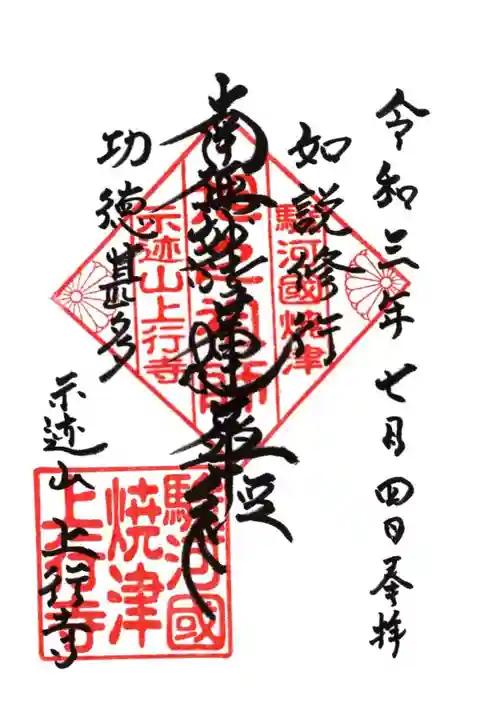 令和三年七月四日奉拝
如説修行
南無妙法蓮華経
功徳甚多
示迹山上行寺
駿河國焼津
示迹山上行寺
駿河國
焼津
上行寺